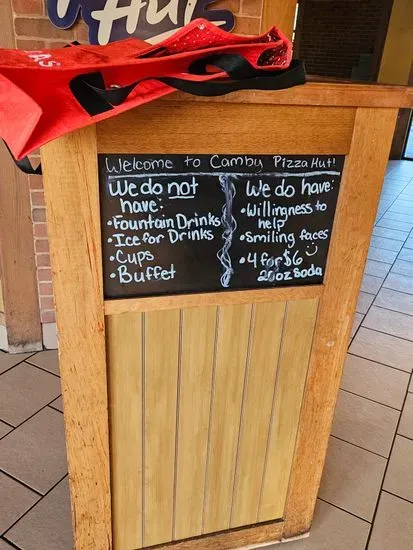 Hut
Welcome to Camby Pizza Hut!
We do not
have:
• Fountain Drinks
• Ice for Drinks
• Cups
• Buffet
We do have:
• Willingness to
help
• Smiling faces
• 4 for $6
20oz soda